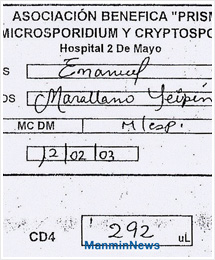 ASOCIACIÓN BENEFICA "PRISM
MICROSPORIDIUM Y CRYPTOSPO
Hospital 2 De Mayo
S Emanuel
OS Marallano Yeipén
MC DM M/esp.
12/02/03
CD4 292 uL
ManminNews